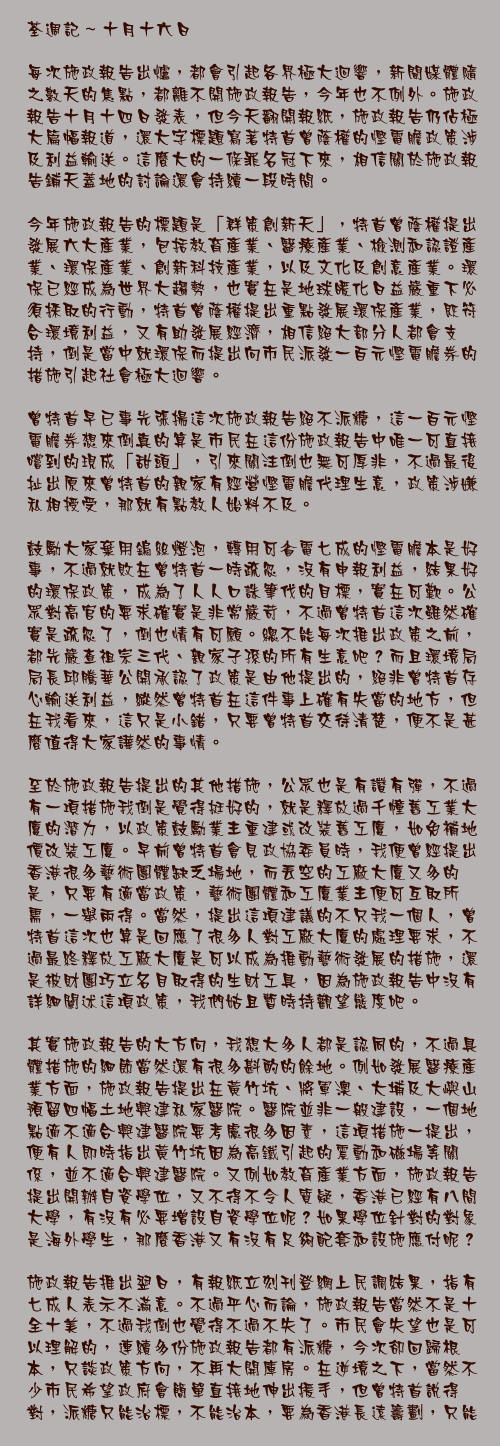 荃週記～十月十六日
每次施政報告出爐，都會引起各界極大迴響，新聞媒體隨
之數天的焦點，都離不開施政報告，今年也不例外。施政
報告十月十四日發表，但今天翻開報紙，施政報告仍佔極
大篇幅報道，還大字標題寫著特首曾蔭權的慳電膽政策涉
及利益輸送。這麼大的一條罪名冠下來，相信關於施政報
告鋪天蓋地的討論還會持續一段時間。
今年施政報告的標題是「群策創新天」，特首曾蔭權提出
發展六大產業，包括教育產業、醫療產業、檢測和認證產
業、環保產業、創新科技產業，以及文化及創意產業。環
保已經成為世界大趨勢，也實在是地球暖化日益嚴重下必
須採取的行動，特首曾蔭權提出重點發展環保產業，既符
合環境利益，又有助發展經濟，相信絕大部分人都會支
持，倒是當中就環保而提出向市民派發一百元慳電膽券的
措施引起社會極大迴響。
曾特首早已事先張揚這次施政報告絕不派糖，這一百元慳
電膽券想來倒真的算是市民在這份施政報告中唯一可直接
嚐到的現成「甜頭」，引來關注倒也無可厚非，不過最後
扯出原來曾特首的親家有經營慳電膽代理生意，政策涉嫌
私相授受，那就有點教人始料不及。
鼓勵大家棄用鎢絲燈泡，轉用可省電七成的慳電膽本是好
事，不過就敗在曾特首一時疏忽，沒有申報利益，結果好
的環保政策，成為了人人口誅筆伐的目標，實在可歎。公
眾對高官的要求確實是非常嚴苛，不過曾特首這次雖然確
實是疏忽了，倒也情有可原。總不能每次推出政策之前，
都先嚴查祖宗三代、親家子孫的所有生意吧？而且環境局
局長邱騰華公開承認了政策是由他提出的，絕非曾特首存
心輸送利益，縱然曾特首在這件事上確有失當的地方，但
在我看來，這只是小錯，只要曾特首交待清楚，便不是甚
麼值得大家譁然的事情。
至於施政報告提出的其他措施，公眾也是有讚有彈，不過
有一項措施我倒是覺得挺好的，就是釋放過千幢舊工業大
廈的潛力，以政策鼓勵業主重建或改裝舊工廈，如免補地
價改裝工廈。早前曾特首會見政協委員時，我便曾經提出
香港很多藝術團體缺乏場地，而丟空的工廠大廈又多的
是，只要有適當政策，藝術團體和工廈業主便可互取所
需，一舉兩得。當然，提出這項建議的不只我一個人，曾
特首這次也算是回應了很多人對工廠大廈的處理要求，不
過最終釋放工廠大廈是可以成為推動藝術發展的措施，還
是被財團巧立名目取得的生財工具，因為施政報告中沒有
詳細闡述這項政策，我們姑且暫時持觀望態度吧。
其實施政報告的大方向，我想大多人都是認同的，不過具
體措施的細節當然還有很多斟酌的餘地。例如發展醫療產
業方面，施政報告提出在黃竹坑、將軍澳、大埔及大嶼山
預留四幅土地興建私家醫院。醫院並非一般建設，一個地
點適不適合興建醫院要考慮很多因素，這項措施一提出，
便有人即時指出黃竹坑因為高鐵引起的震動和磁場等關
係，並不適合興建醫院。又例如教育產業方面，施政報告
提出開辦自資學位，又不得不令人質疑，香港已經有八間
大學，有沒有必要增設自資學位呢？如果學位針對的對象
是海外學生，那麼香港又有沒有足夠配套和設施應付呢？
施政報告推出翌日，有報紙立刻刊登網上民調結果，指有
七成人表示不滿意。不過平心而論，施政報告當然不是十
全十美，不過我倒也覺得不過不失了。市民會失望也是可
以理解的，連續多份施政報告都有派糖，今次卻回歸根
本，只談政策方向，不再大開庫房。在逆境之下，當然不
少市民希望政府會簡單直接地伸出援手，但曾特首說得
對，派糖只能治標，不能治本，要為香港長遠籌劃，只能